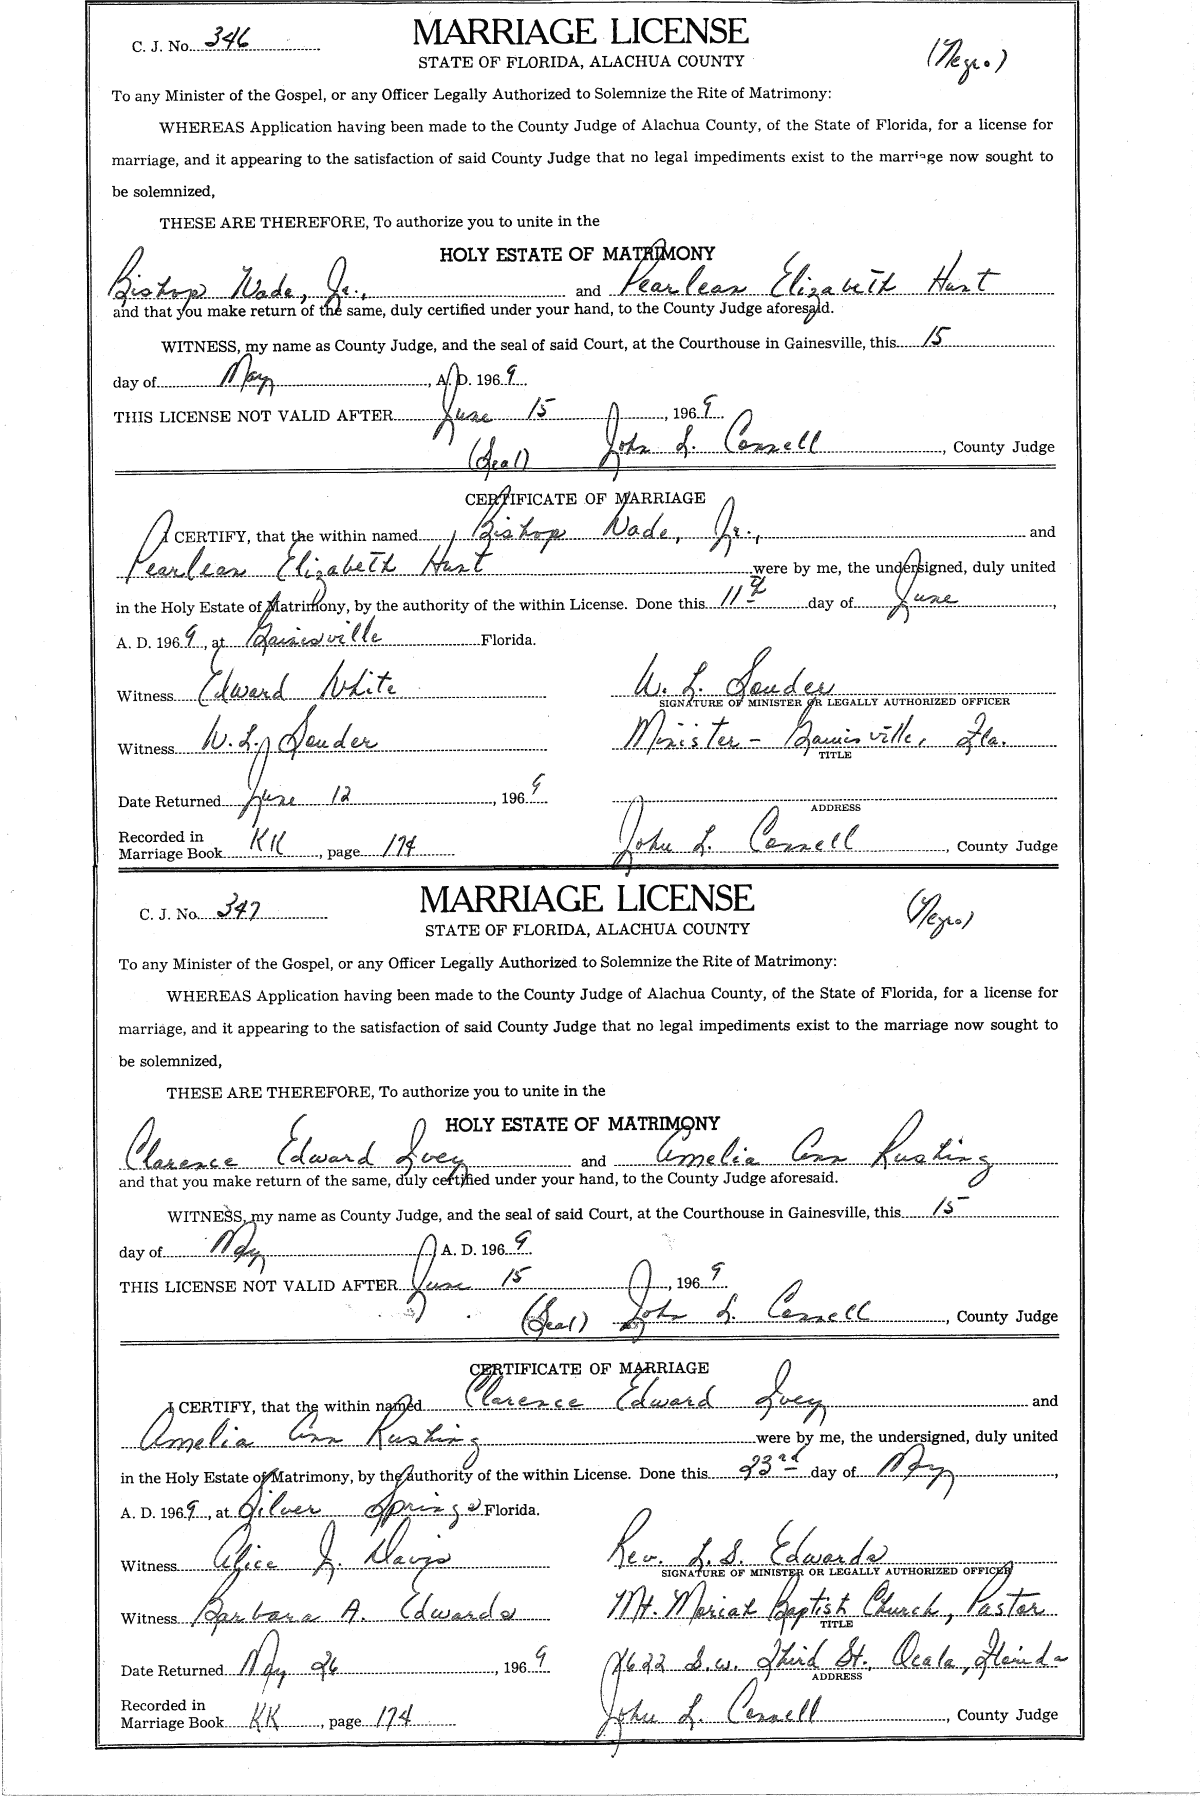 C. J. No. 346
MARRIAGE LICENSE
(Negro)
STATE OF FLORIDA, ALACHUA COUNTY
To any Minister of the Gospel, or any Officer Legally Authorized to Solemnize the Rite of Matrimony:
WHEREAS Application having been made to the County Judge of Alachua County, of the State of Florida, for a license for
marriage, and it appearing to the satisfaction of said County Judge that no legal impediments exist to the marriage now sought to
be solemnized,
THESE ARE THEREFORE, To authorize you to unite in the
HOLY ESTATE OF MATRIMONY
Bishop Wade, Jr., and Pearlean Elizabeth Hunt
and that you make return of the same, duly certified under your hand, to the County Judge aforesaid.
WITNESS, my name as County Judge, and the seal of said Court, at the Courthouse in Gainesville, this 15
day of May, A. D. 1969
THIS LICENSE NOT VALID AFTER June 15, 1969
(Seal) John L. Connell, County Judge
CERTIFICATE OF MARRIAGE
I CERTIFY, that the within named Bishop Wade, Jr., and
Pearlean Elizabeth Hunt were by me, the undersigned, duly united
in the Holy Estate of Matrimony, by the authority of the within License. Done this 11th day of June,
A. D. 1969, at Gainesville Florida.
Witness Edward White W. L. Souder
SIGNATURE OF MINISTER OR LEGALLY AUTHORIZED OFFICER
Witness W. L. Souder Minister - Gainesville, Fla.
TITLE
Date Returned June 12, 1969
ADDRESS
Recorded in
Marriage Book KK, page 174 John L. Connell, County Judge
C. J. No. 347
MARRIAGE LICENSE
(Negro)
STATE OF FLORIDA, ALACHUA COUNTY
To any Minister of the Gospel, or any Officer Legally Authorized to Solemnize the Rite of Matrimony:
WHEREAS Application having been made to the County Judge of Alachua County, of the State of Florida, for a license for
marriage, and it appearing to the satisfaction of said County Judge that no legal impediments exist to the marriage now sought to
be solemnized,
THESE ARE THEREFORE, To authorize you to unite in the
HOLY ESTATE OF MATRIMONY
Clarence Edward Ivey and Amelia Ann Rushing
and that you make return of the same, duly certified under your hand, to the County Judge aforesaid.
WITNESS, my name as County Judge, and the seal of said Court, at the Courthouse in Gainesville, this 15
day of May A. D. 1969
THIS LICENSE NOT VALID AFTER June 15, 1969
(Seal) John L. Connell, County Judge
CERTIFICATE OF MARRIAGE
I CERTIFY, that the within named Clarence Edward Ivey and
Amelia Ann Rushing were by me, the undersigned, duly united
in the Holy Estate of Matrimony, by the authority of the within License. Done this 23rd day of May,
A. D. 1969, at Silver Springs Florida.
Witness Alice J. Davis Rev. L. S. Edwards
SIGNATURE OF MINISTER OR LEGALLY AUTHORIZED OFFICER
Witness Barbara A. Edwards Mt. Moriah Baptist Church, Pastor
TITLE
Date Returned May 26, 1969 1622 S.W. Third St., Ocala, Florida
ADDRESS
Recorded in
Marriage Book KK, page 174 John L. Connell, County Judge